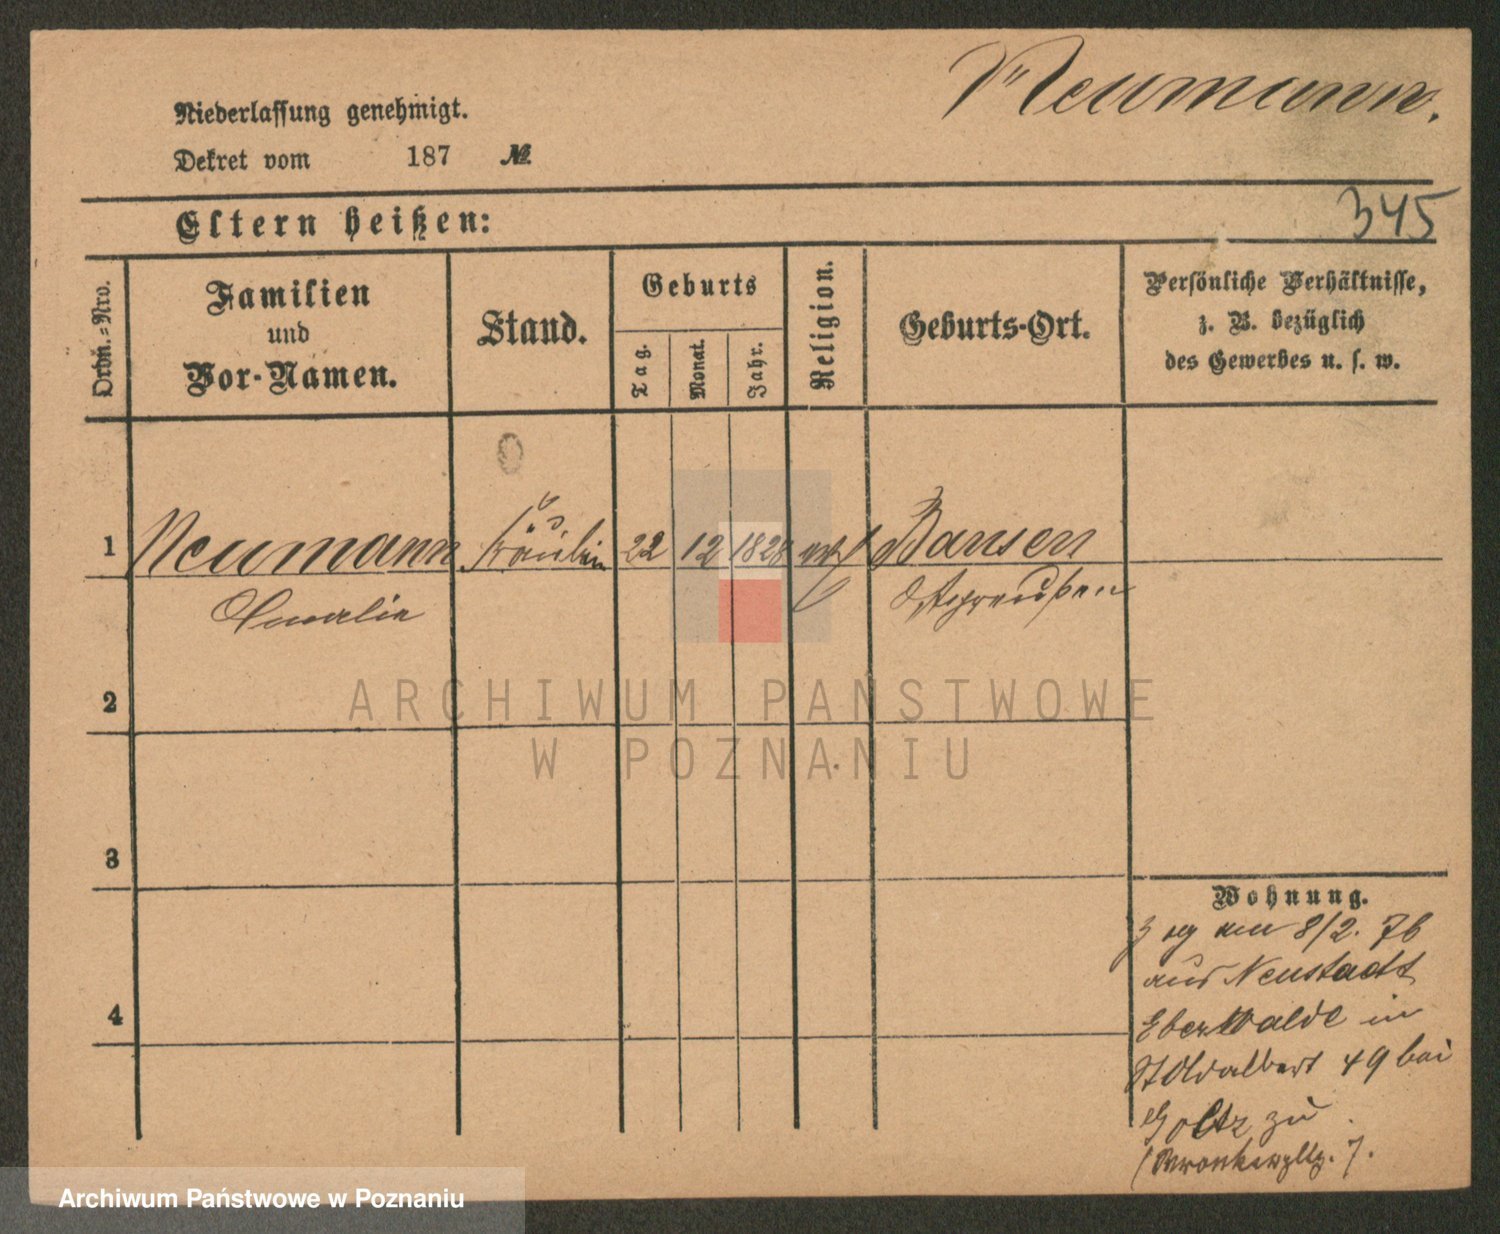 Neumann.
Niederlassung genehmigt.
Dekret vom 187 №
345
Eltern heißen:
Ordn.=Nro.
Familien
und
Vor-Namen.
Stand.
Geburts
Tag.
Monat.
Jahr.
Religion.
Geburts-Ort.
Persönliche Verhältnisse,
z. B. bezüglich
des Gewerbes u. s. w.
1 Neumann Fräulein 22 12 1828 Bansen
Amalie Ostpreußen
2
ARCHIWUM PAŃSTWOWE
W POZNANIU
3
Wohnung.
zog am 8/2. 76
aus Neustadt
Eberswalde in
4
St Adalbert 49 bei
Goltz zu
Wronkerpltz. 7.
Archiwum Państwowe w Poznaniu